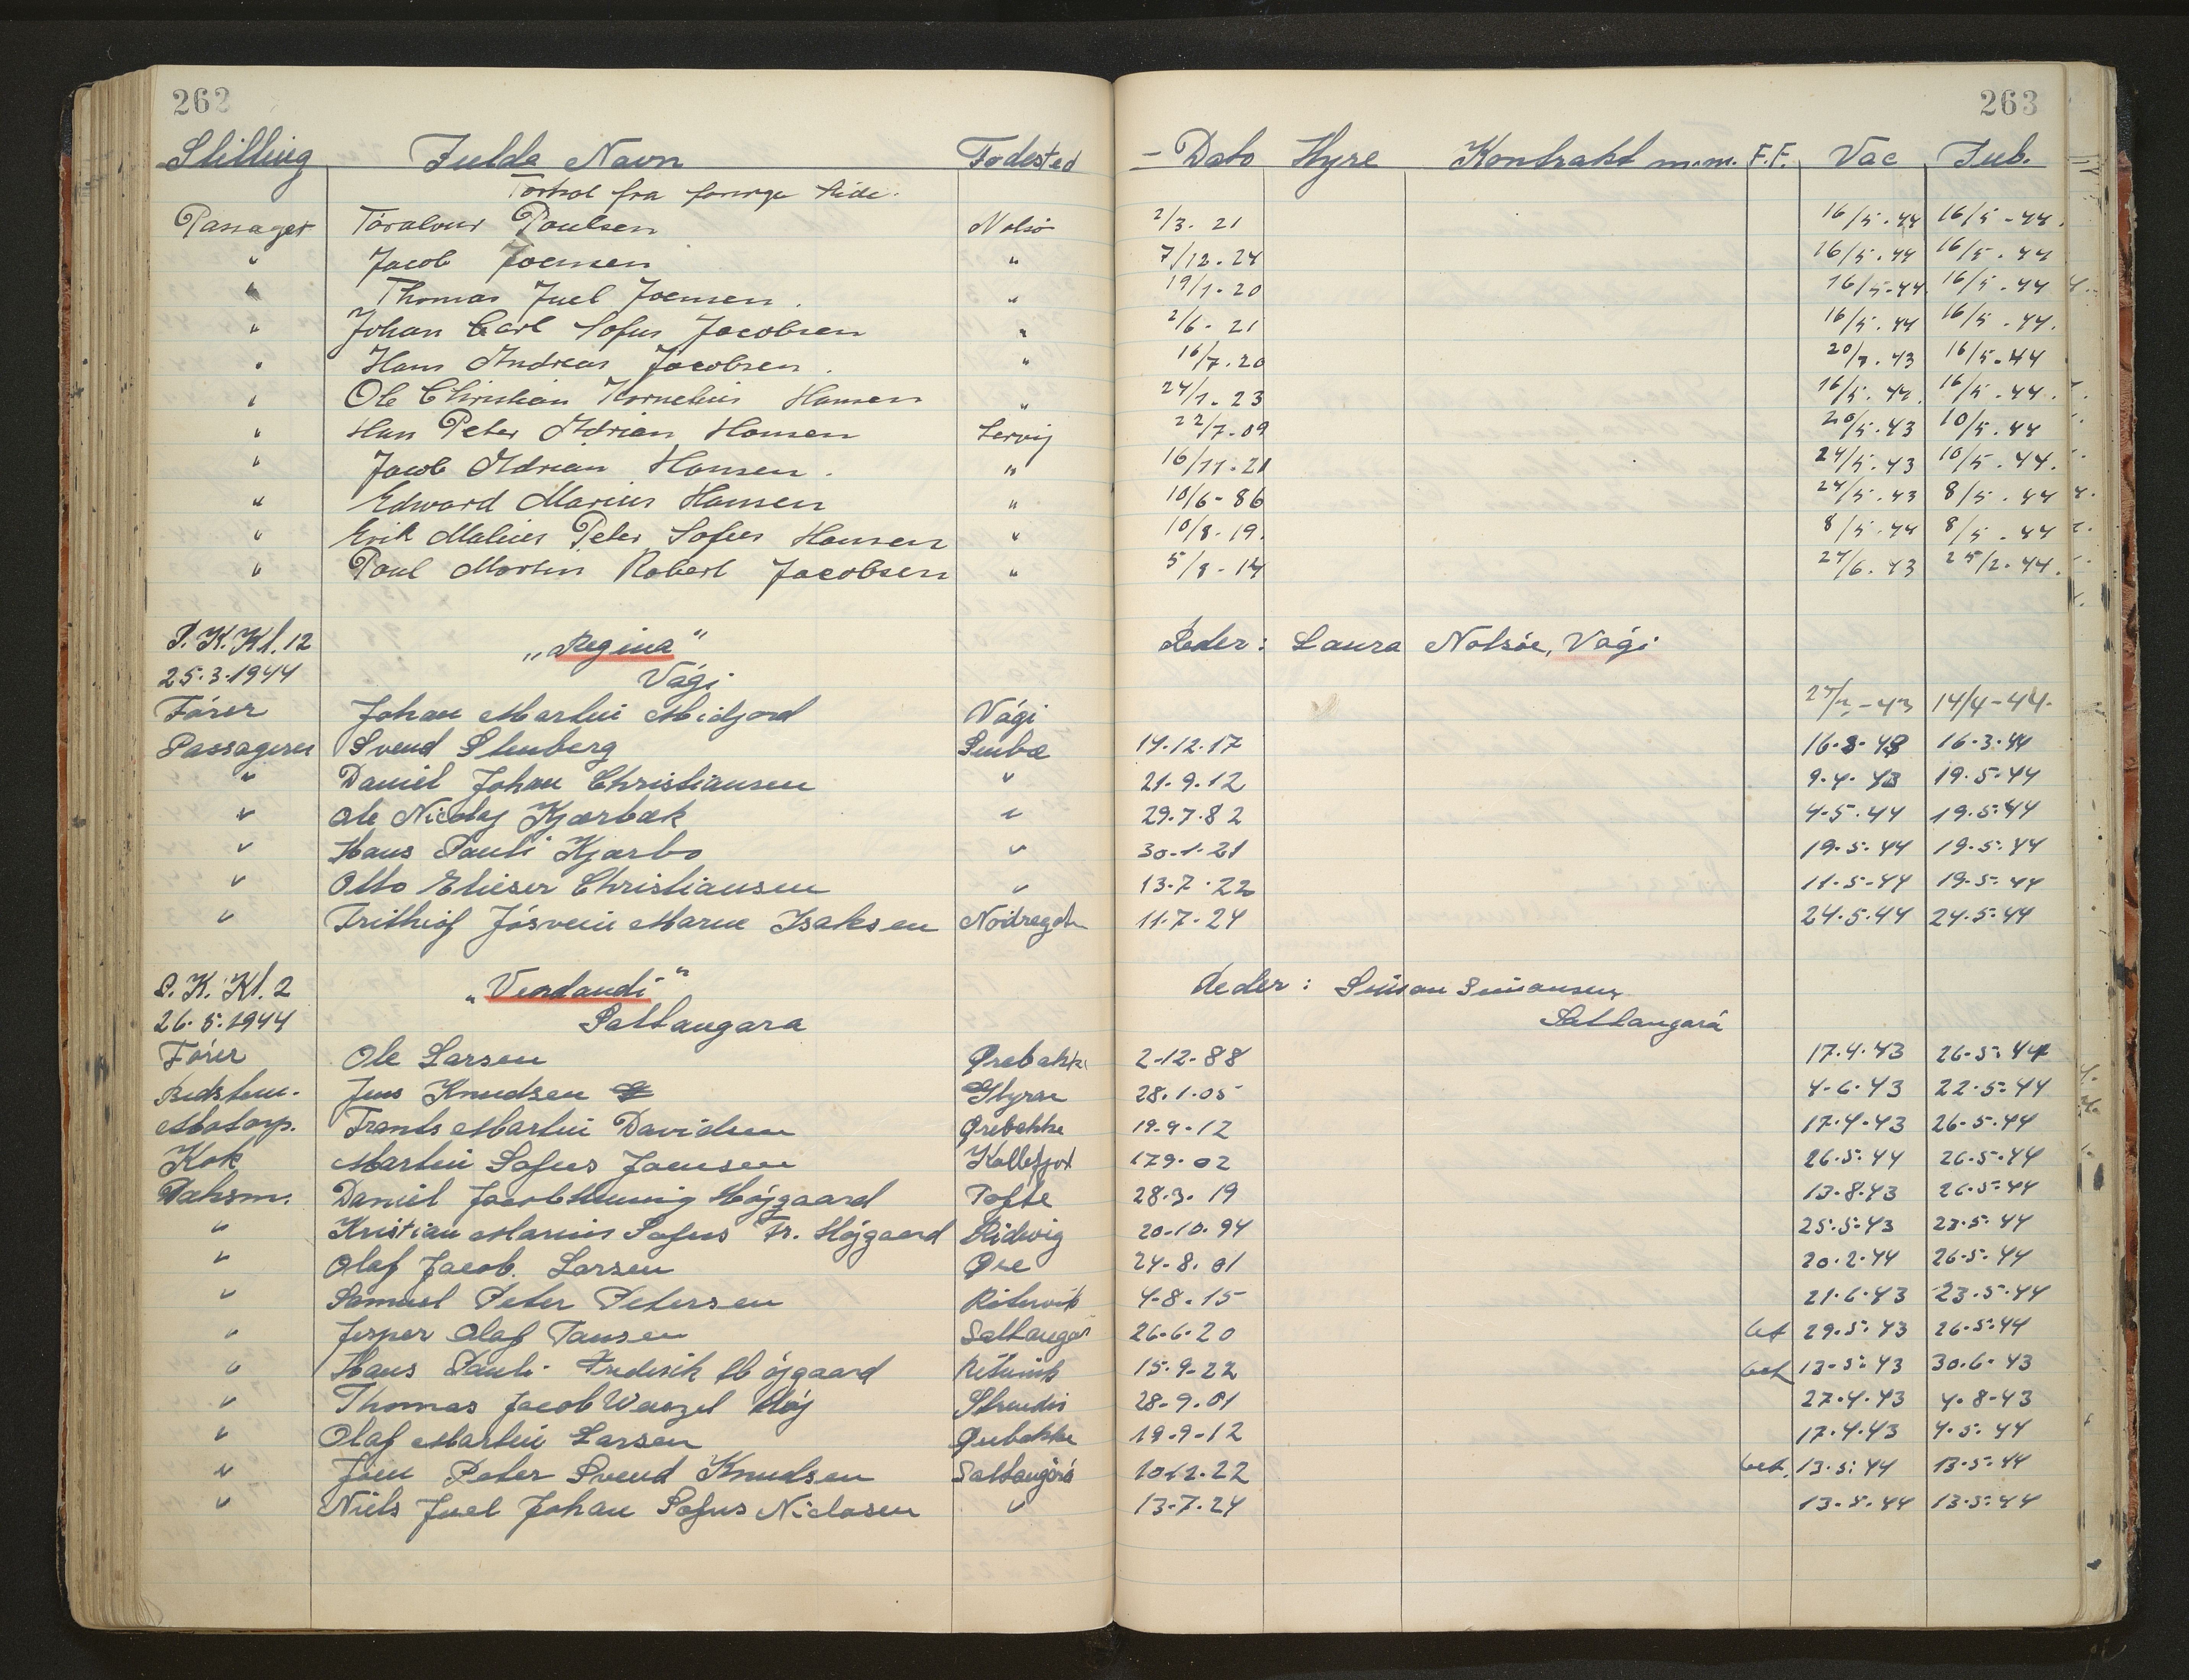 262 263
Stilling Fulde Navn Fødested - Dato Hyre Kontrakt m.m. F.F. Vac Tub.
fra forrige Side.
Passager Tóralvur Poulsen Nolsö 2/3. 21 16/5.44 16/5-44.
" Jacob Joensen " 7/12.24 16/5.44 16/5.44
" Thomas Juel Joensen. " 19/1-20 16/5-44 16/5.44
" Johan Carl Sofus Jacobsen " 2/6-21 16/5.44 16/5-44.
" Hans Andreas Jacobsen. " 16/7.20 20/7.43 16/5-44
" Ole Christian Kornelius Hansen " 24/1-23 16/5.44. 16/5-44.
" Hans Peter Adrian Hansen Lervig 22/7-09 20/5.43 10/5.44
" Jacob Adrian Hansen. " 16/11.21 24/5.43 10/5.44.
" Edward Marius Hansen " 10/6-86 24/5.43 8/5.44
" Erik Malius Peter Sofus Hansen " 10/8-19. 8/5-44 8/5.44
" Poul Martin Robert Jacobsen " 5/8-14 24/6.43 25/2-44.
P.K.Kl.12 "Regina" Reder: Laura Nolsöe, Vági
25.3.1944 Vági
Förer Johan Martin Midjord Vági 14/4-44.
Passagerer Svend Stenberg Sumbø 14.12.17 16.3.43 16.3.44
" Daniel Johan Christiansen " 21.9.12 9.4.43 19.5.44
" Ole Nicolaj Kjærbæk " 29.7.82 4-5.44 19.5.44
" Hans Pauli Kjærbo " 30-1-21 19.5.44 19.5.44
" Otto Elieser Christiansen " 13.7.22 11.5-44 19.5.44
" Frithiof Jósvein Marne Isaksen Nordragöta 11.7-24 24.5.44 24.5.44
P.K. Kl.2 "Verdandi" Reder: Simon Simonsen
26.5.1944 Saltangara Saltangará
Förer Ole Larsen Ørebakke 2-12-88 17.4.43 26-5.44
Bedstem. Jens Knudsen Glyrar 28.1.05 4-6.43 22-5-44
Motorp. Frants Martin Davidsen Ørebakke 19-9-12 17.4-43 26-5.44
Kok Martin Sofus Joensen Kollefjord 179.02 26.5.44 26.5.44
Daksm. Daniel Jacob Henning Højgaard Tofte 28.3.19 13-8.43 26.5.44
" Kristian Marius Sofus Fr. Højgaard Ridevig 20-10.94 25.5.43 23.5.44
" Olaf Jacob. Larsen Øre 24-8.01 20.2-44 26.5.44
" Samuel Peter Petersen Ritevik 4-8.15 21.6.43 23.5.44
" Jesper Olaf Tausen Saltangar 26.6.20 bet 29.5.43 26.5.44
" Hans Pauli Frederik Højgaard Ritevik 15.9-22 bet 13-5.43 30.6-43
" Thomas Jacob Wenzel Höj Strendir 28-9.01 27.4.43 4.8-43
" Olaf Martin Larsen Ørebakke 19-9-12 17.4.43 4.5.44
" Jóen Peter Svend Knudsen Saltangará 10-12.22 bet. 13.5.44 13.5.44
" Niels Juel Johan Sofus Niclasen " 13-7.24 13-5.44 13.5.44